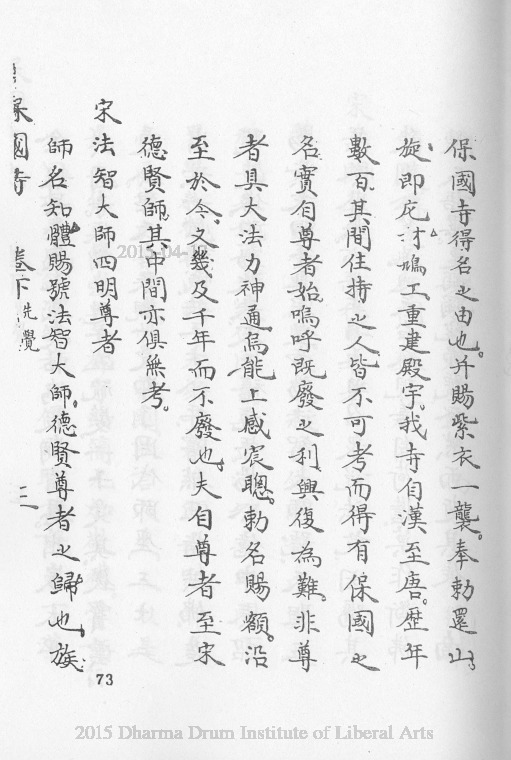 保國寺得名之由也。并賜紫衣一襲。奉勅還山。
旋即庀材鳩工重建殿宇。我寺自漢至唐。歷年
數百。其間住持之人皆不可考而得有保國之
名實自尊者始。嗚呼既廢之利興復為難。非尊
者具大法力神通烏能上感宸聰。勅名賜額。沿
至於今。又幾及千年而不廢也。夫自尊者至宋
德賢師。其中間亦俱無考。
宋法智大師四明尊者
師名知體賜號法智大師。德賢尊者之歸也。族
保國寺 卷下 先覺 三
73
2015 Dharma Drum Institute of Liberal Arts